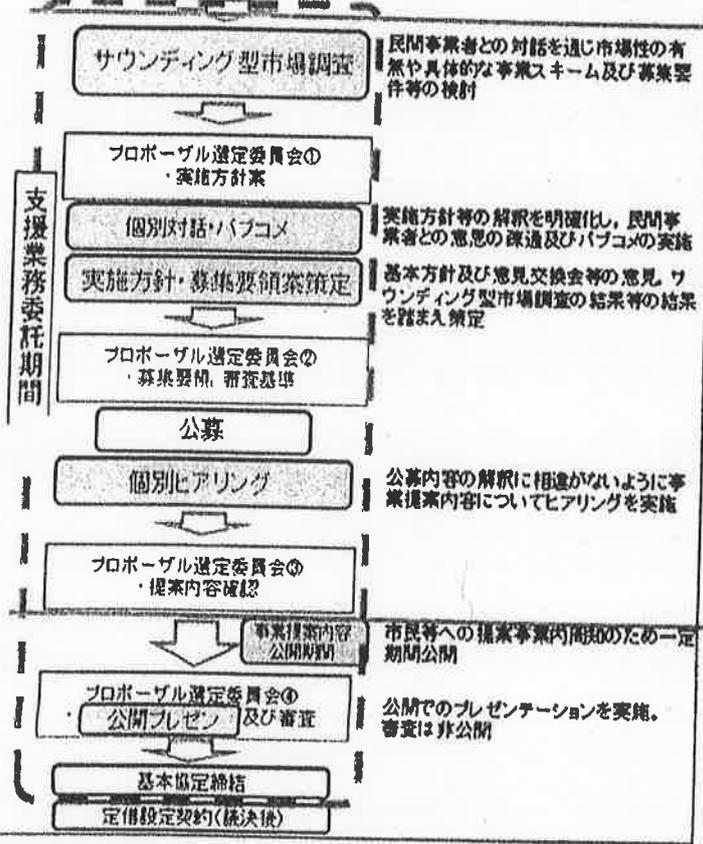 サウンディング型市場調査
民間事業者との対話を通じ市場性の有
無や具体的な事業スキーム及び募集要
件等の検討
プロポーザル選定委員会①
・実施方針案
支援業務委託期間
個別対話・パブコメ
実施方針等の解釈を明確化し、民間事
業者との意思の疎通及びパブコメの実施
実施方針・募集要領案策定
基本方針及び意見交換会等の意見、サ
ウンディング型市場調査の結果等の結果
を踏まえ策定
プロポーザル選定委員会②
・募集要領、審査基準
公募
個別ヒアリング
公募内容の解釈に相違がないように事
業提案内容についてヒアリングを実施
プロポーザル選定委員会③
・提案内容確認
事業提案内容
公開期間
市民等への提案事業内周知のため一定
期間公開
プロポーザル選定委員会④
・公開プレゼン及び審査
公開でのプレゼンテーションを実施。
審査は非公開
基本協定締結
定借設定契約(議決後)